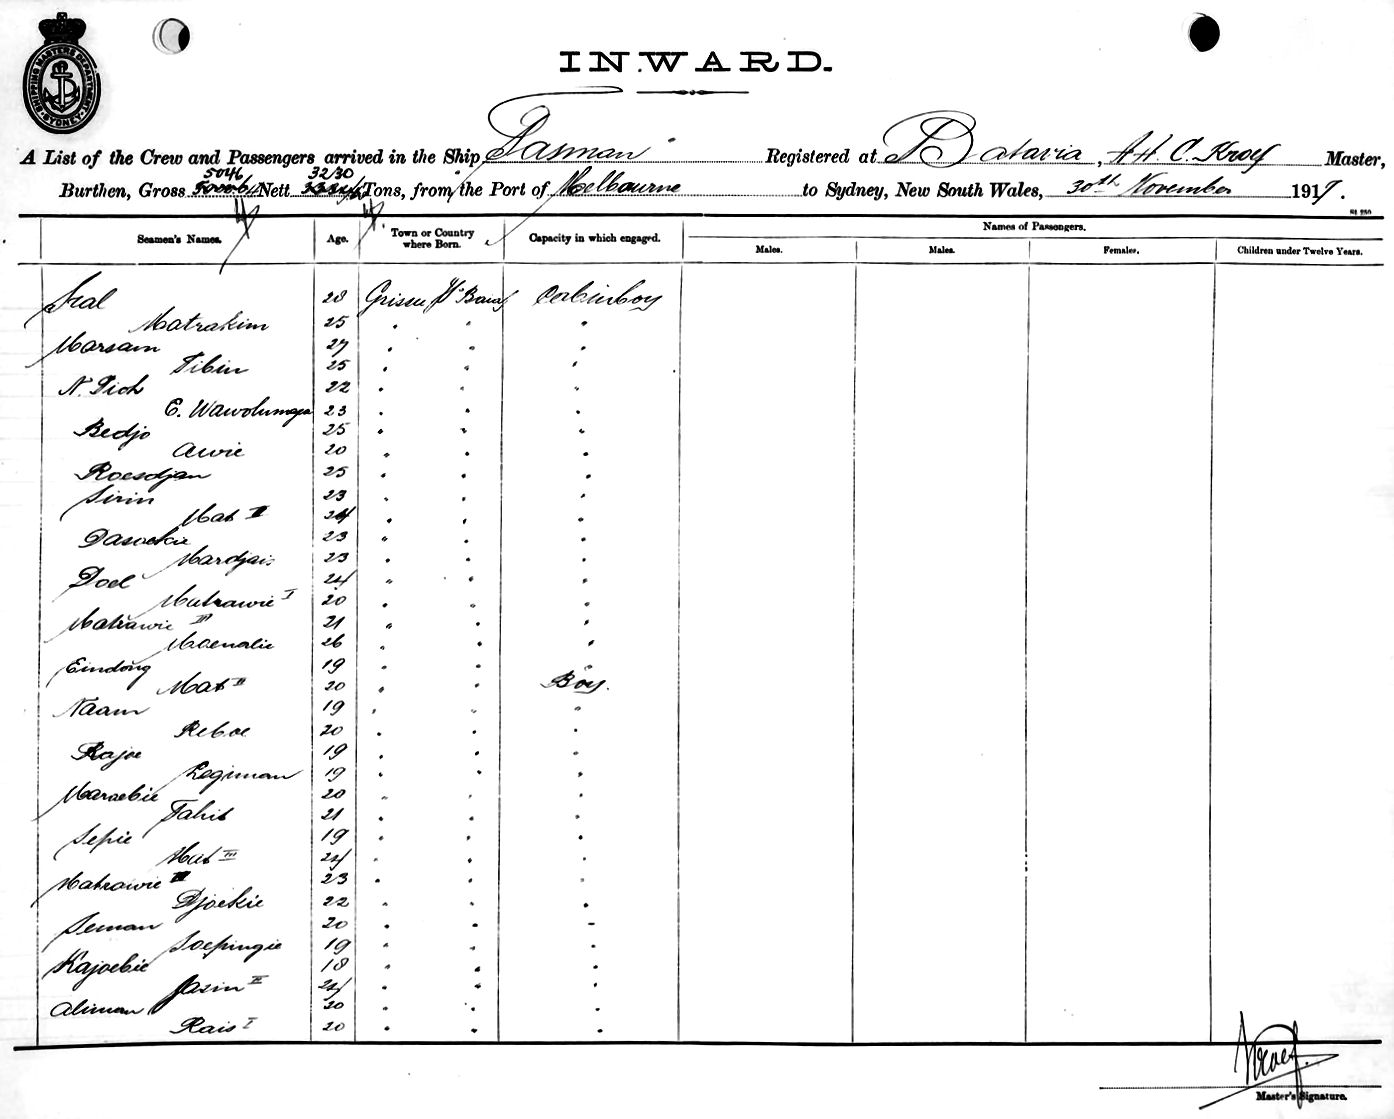 SHIPPING MASTERS DEPARTMENT SYDNEY
INWARD.
A List of the Crew and Passengers arrived in the Ship Tasman Registered at Batavia, A.H. C. Kroef Master,
5046 32/30
Burthen, Gross Nett Tons, from the Port of Melbourne to Sydney, New South Wales, 30th November 1917.
Seamen's Names. Age. Town or Country where Born. Capacity in which engaged. Names of Passengers.
Males. Males. Females. Children under Twelve Years.
28 Grissee
Matrakim 25 "
Marsam 27 "
Tibin 25 "
N. Pich 22 "
E. 23 "
Bedjo 25 "
Awie 20 "
Roesdjan 25 "
Sirin 23 "
Mat II 24 "
23 "
Mardjais 23 "
Doel 24 "
Matrawie I 20 "
Matrawie III 21 "
Moenalie 26 "
Eindong 19 "
Mat II 20 " Boy.
Naam 19 "
Reboe 20 "
Kajoe 19 "
Legiman 19 "
Maraebie 20 "
Tahib 21 "
Sepie 19 "
Mat III 24 "
Matrawie 23 "
Djoekie 22 "
Seman 20 "
Soepingie 19 "
Kajoebie 18 "
Jasin II 24 "
Aliman 20 "
Rais I 20 "
Kroef.
Master's Signature.